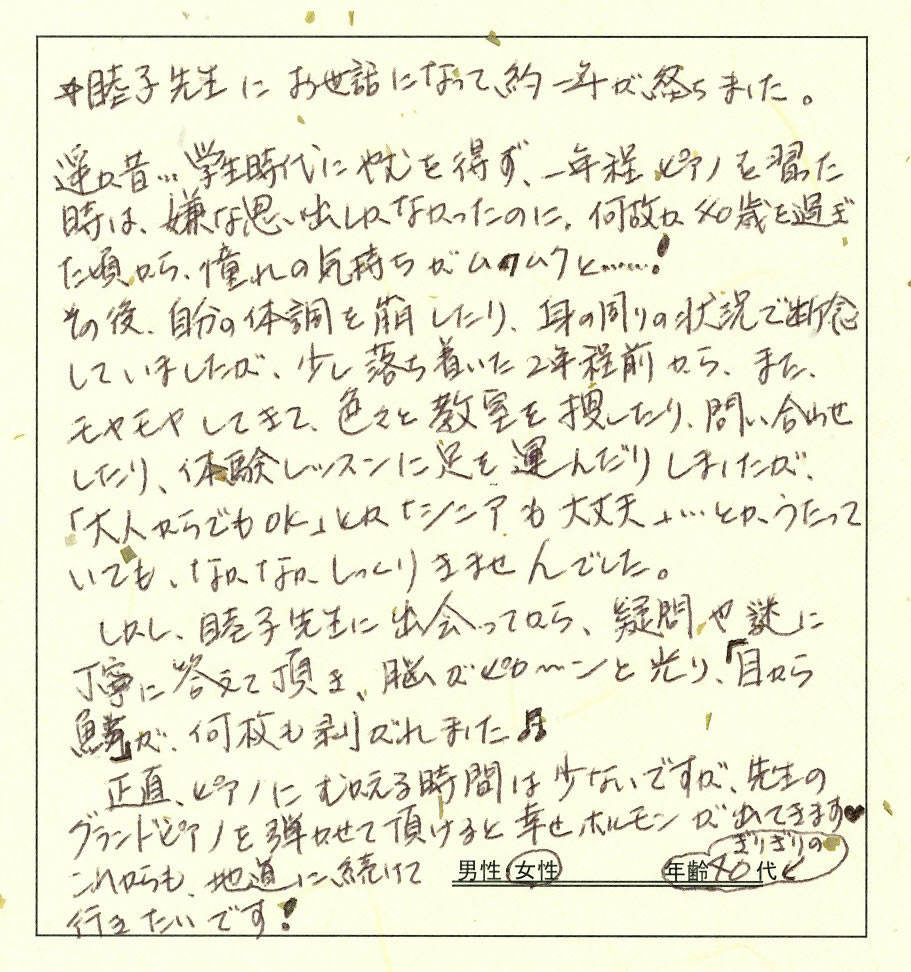 *睦子先生に お世話になって、約一年が経ちました。
遥か昔…学生時代にやむを得ず、一年程ピアノを習った
時は、嫌な思い出しかなかったのに、何故か40歳を過ぎ
た頃から、憧れの気持ちがムクムクと……!
その後、自分の体調を崩したり、身の周りの状況で断念
していましたが、少し落ち着いた2年程前から、また、
モヤモヤしてきて、色々と教室を捜したり、問い合わせ
したり、体験レッスンに足を運んだりしましたが、
「大人からでもOK」とか「シニアも大丈夫」…とか、うたって
いても、なかなか、しっくりきませんでした。
しかし、睦子先生に出会ってから、疑問や謎に
丁寧に答えて頂き、脳がピカ〜ンと光り、「目から
鱗」が、何枚も剥がれました♫
正直、ピアノにむかえる時間は少ないですが、先生の
グランドピアノを弾かせて頂けると幸せホルモンが出てきます♥
これからも、地道に続けて
行きたいです!
男性・女性
年齢 40代
ぎりぎりの